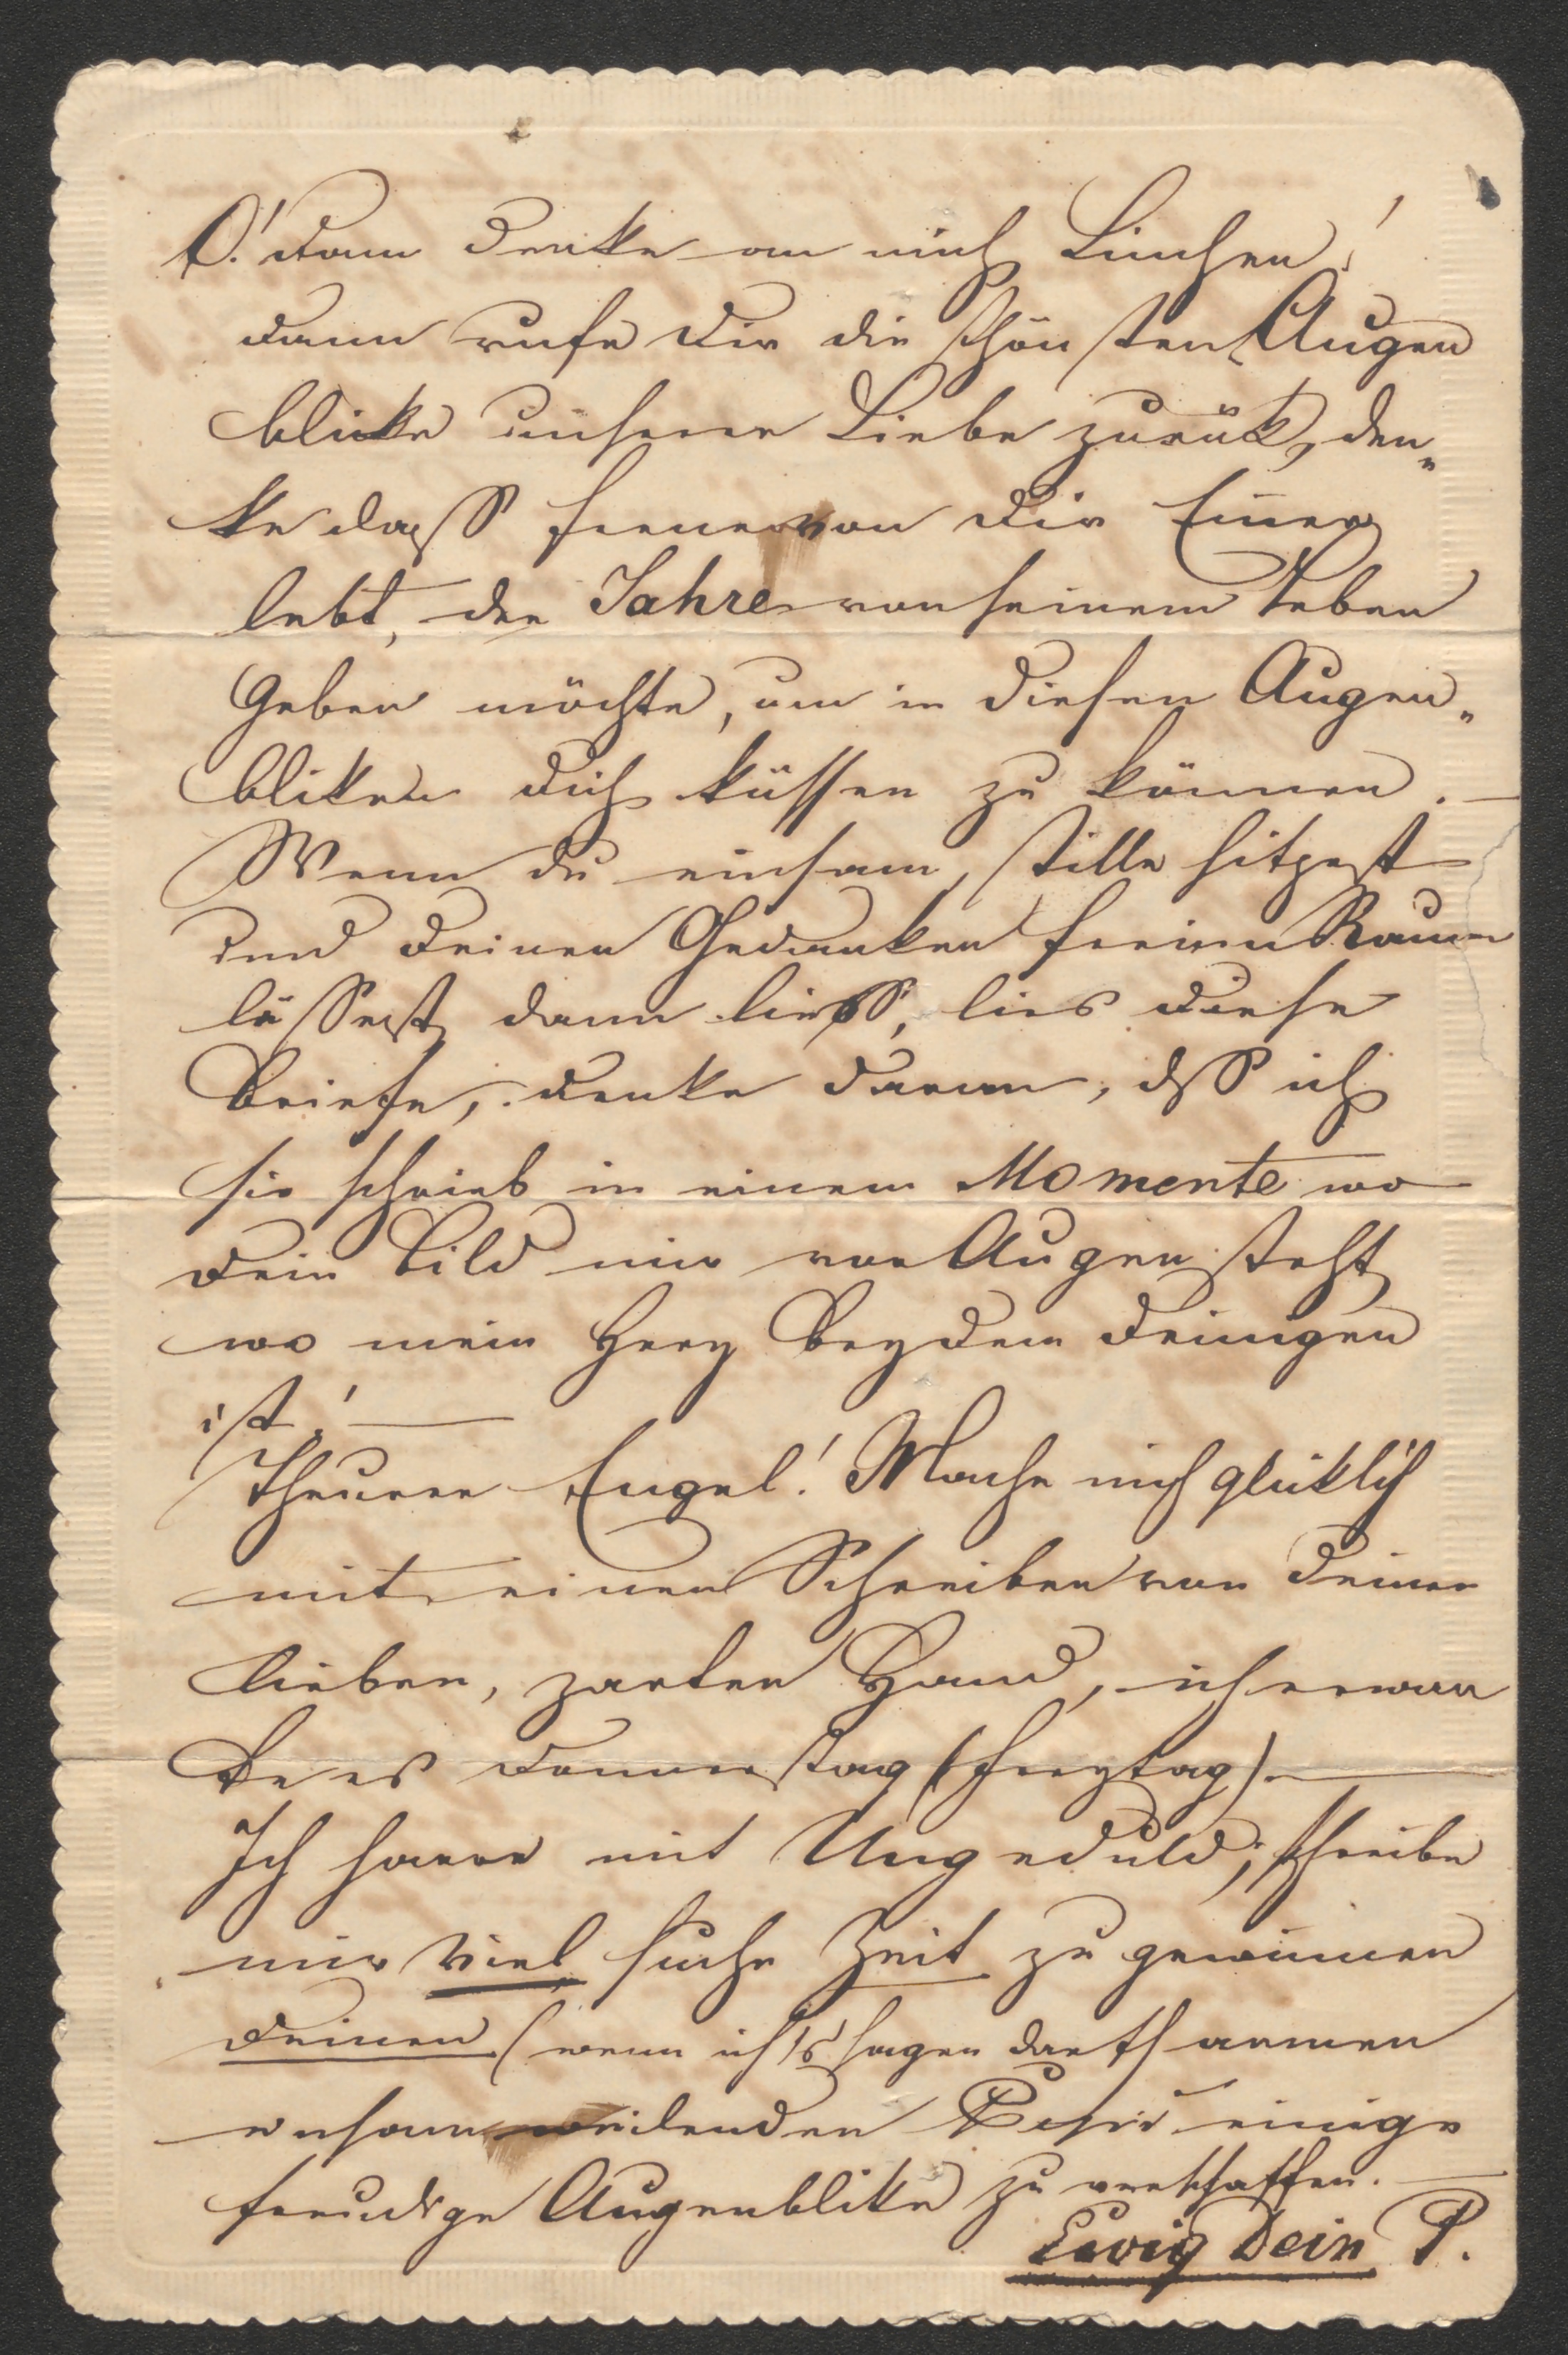 O! dann denke an mich Linchen!
dann rufe Dir die schönsten Augen
blicke unserer Liebe zurük, den„
ke daß ferne von Dir Einer
lebt, der Jahre von seinem Leben
Geben möchte, um in diesen Augen„
bliken dich küssen zu können. —
Wenn du einsam, stille sitzest
und Deinen Gedanken freien Raum
lässest, dann lies, lies diese
Briefe, denke daran, dß ich
sie schrieb in einem Momente wo
Dein Bild mir vor Augen steht
wo mein Herz bey dem Deinigen
ist! —
Theurer Engel! Mache mich glüklich
mit einen Schreiben von Deiner
lieben, zarten Hand, ich erwar
te es Donnerstag (Freytag). —
Ich harre mit Ungeduld, schreibe
mir viel suche Zeit zu gewinnen
Deinen (wenn ich's sagen darf) armen
einsam weilenden einige
freudige Augenblike zu verschaffen. —
Ewig Dein P.